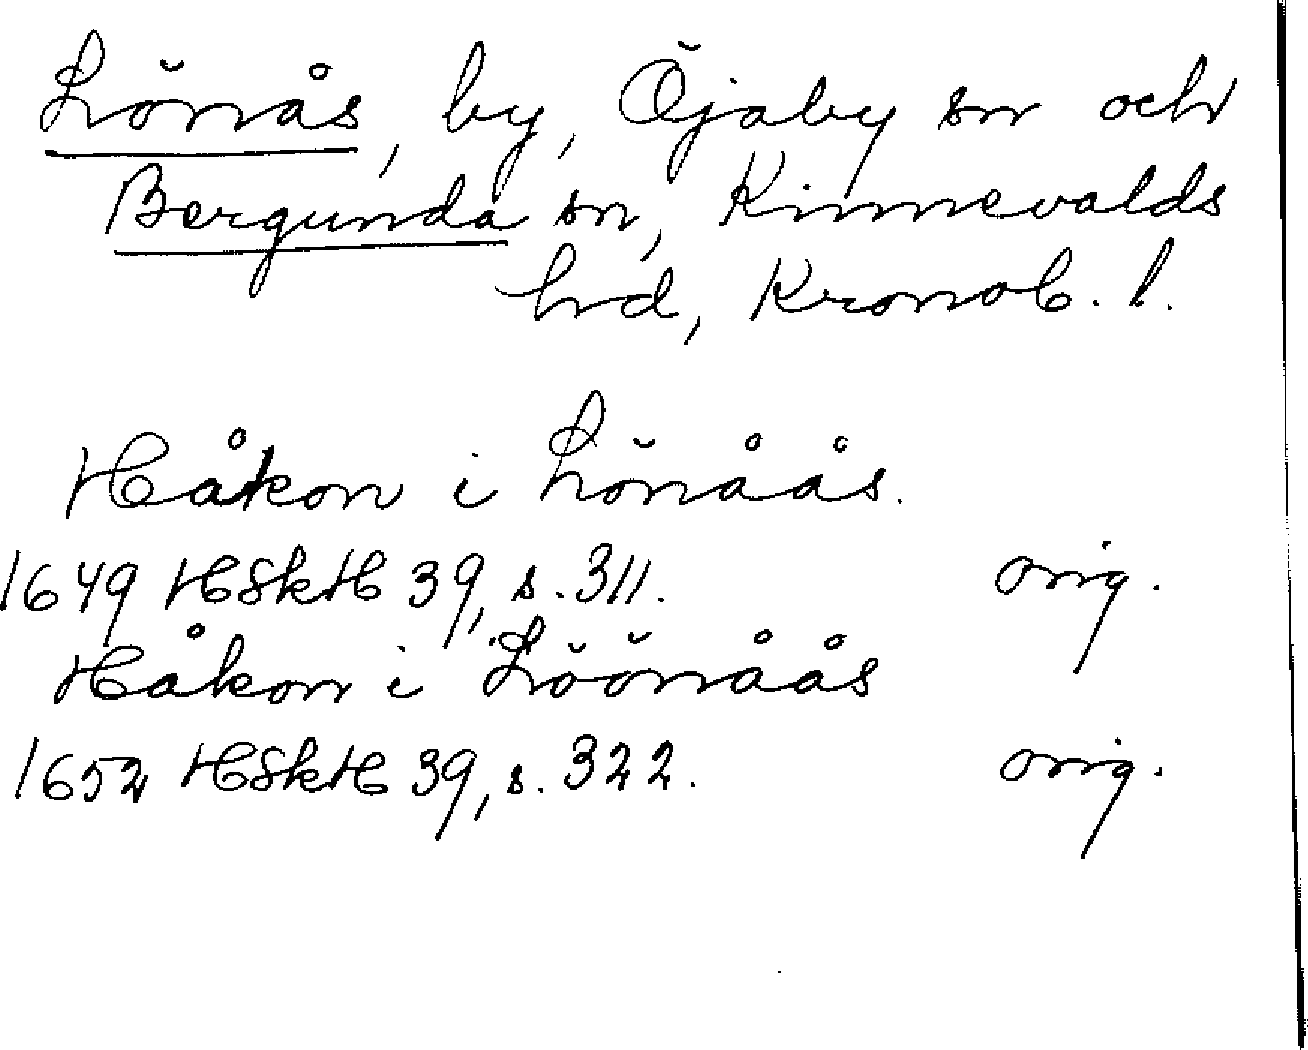 Lönås, by, Öjaby sn och
Bergunda sn, Kinnevalds
hrd, Kronob. l.
Håkon i Lönåås.
1649 HSkH 39, s. 311. orig.
Håkon i Löönåås
1652 HSkH 39, s. 322. orig.